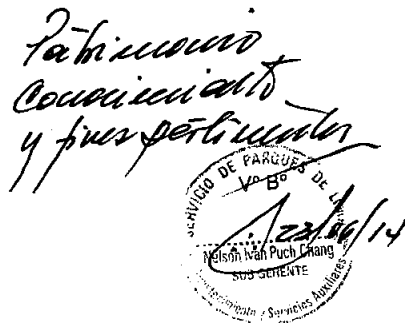 Patrimonio
Conocimiento
y fines pertinentes
SERVICIO DE PARQUES DE
Vº Bº
23/06/14
Nelson Ivan Puch Chang
SUB GERENTE
Servicios Auxiliares